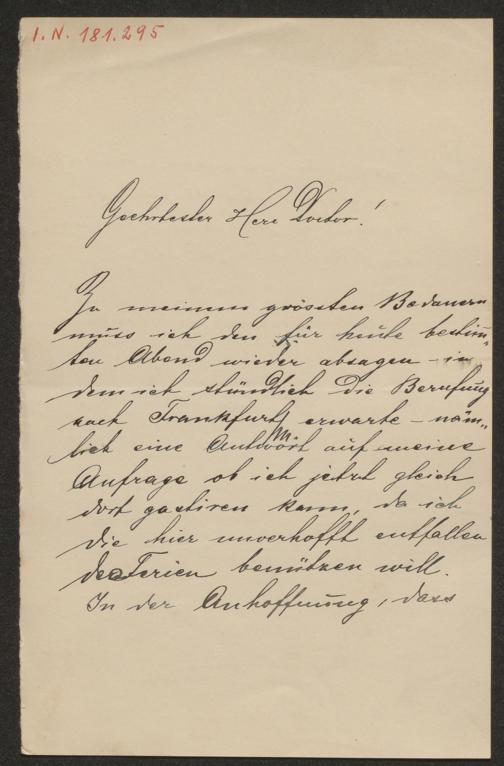 I.N. 181.295
Geehrtester Herr Doctor!
Zu meinem grössten Bedauern
muss ich den für heute bestim„
ten Abend wieder absagen - in
dem ich stündlich die Berufung
nach Frankfurt erwarte - näm„
lich eine Antwort auf meine
Anfrage ob ich jetzt gleich
dort gastiren kann, da ich
die hier unverhofft entfallen
de Ferien benützen will.
In der Anhoffnung, dass